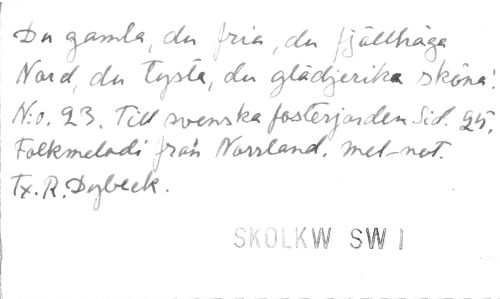 Du gamla, du fria, du fjällhöga
Nord, du tysta, du glädjerika sköna!
N:o. 23. Till svenska fosterjorden Sid. 25.
Folkmelodi från Norrland. mel-not.
Tx. R. Dybeck.
SKOLKW SW I